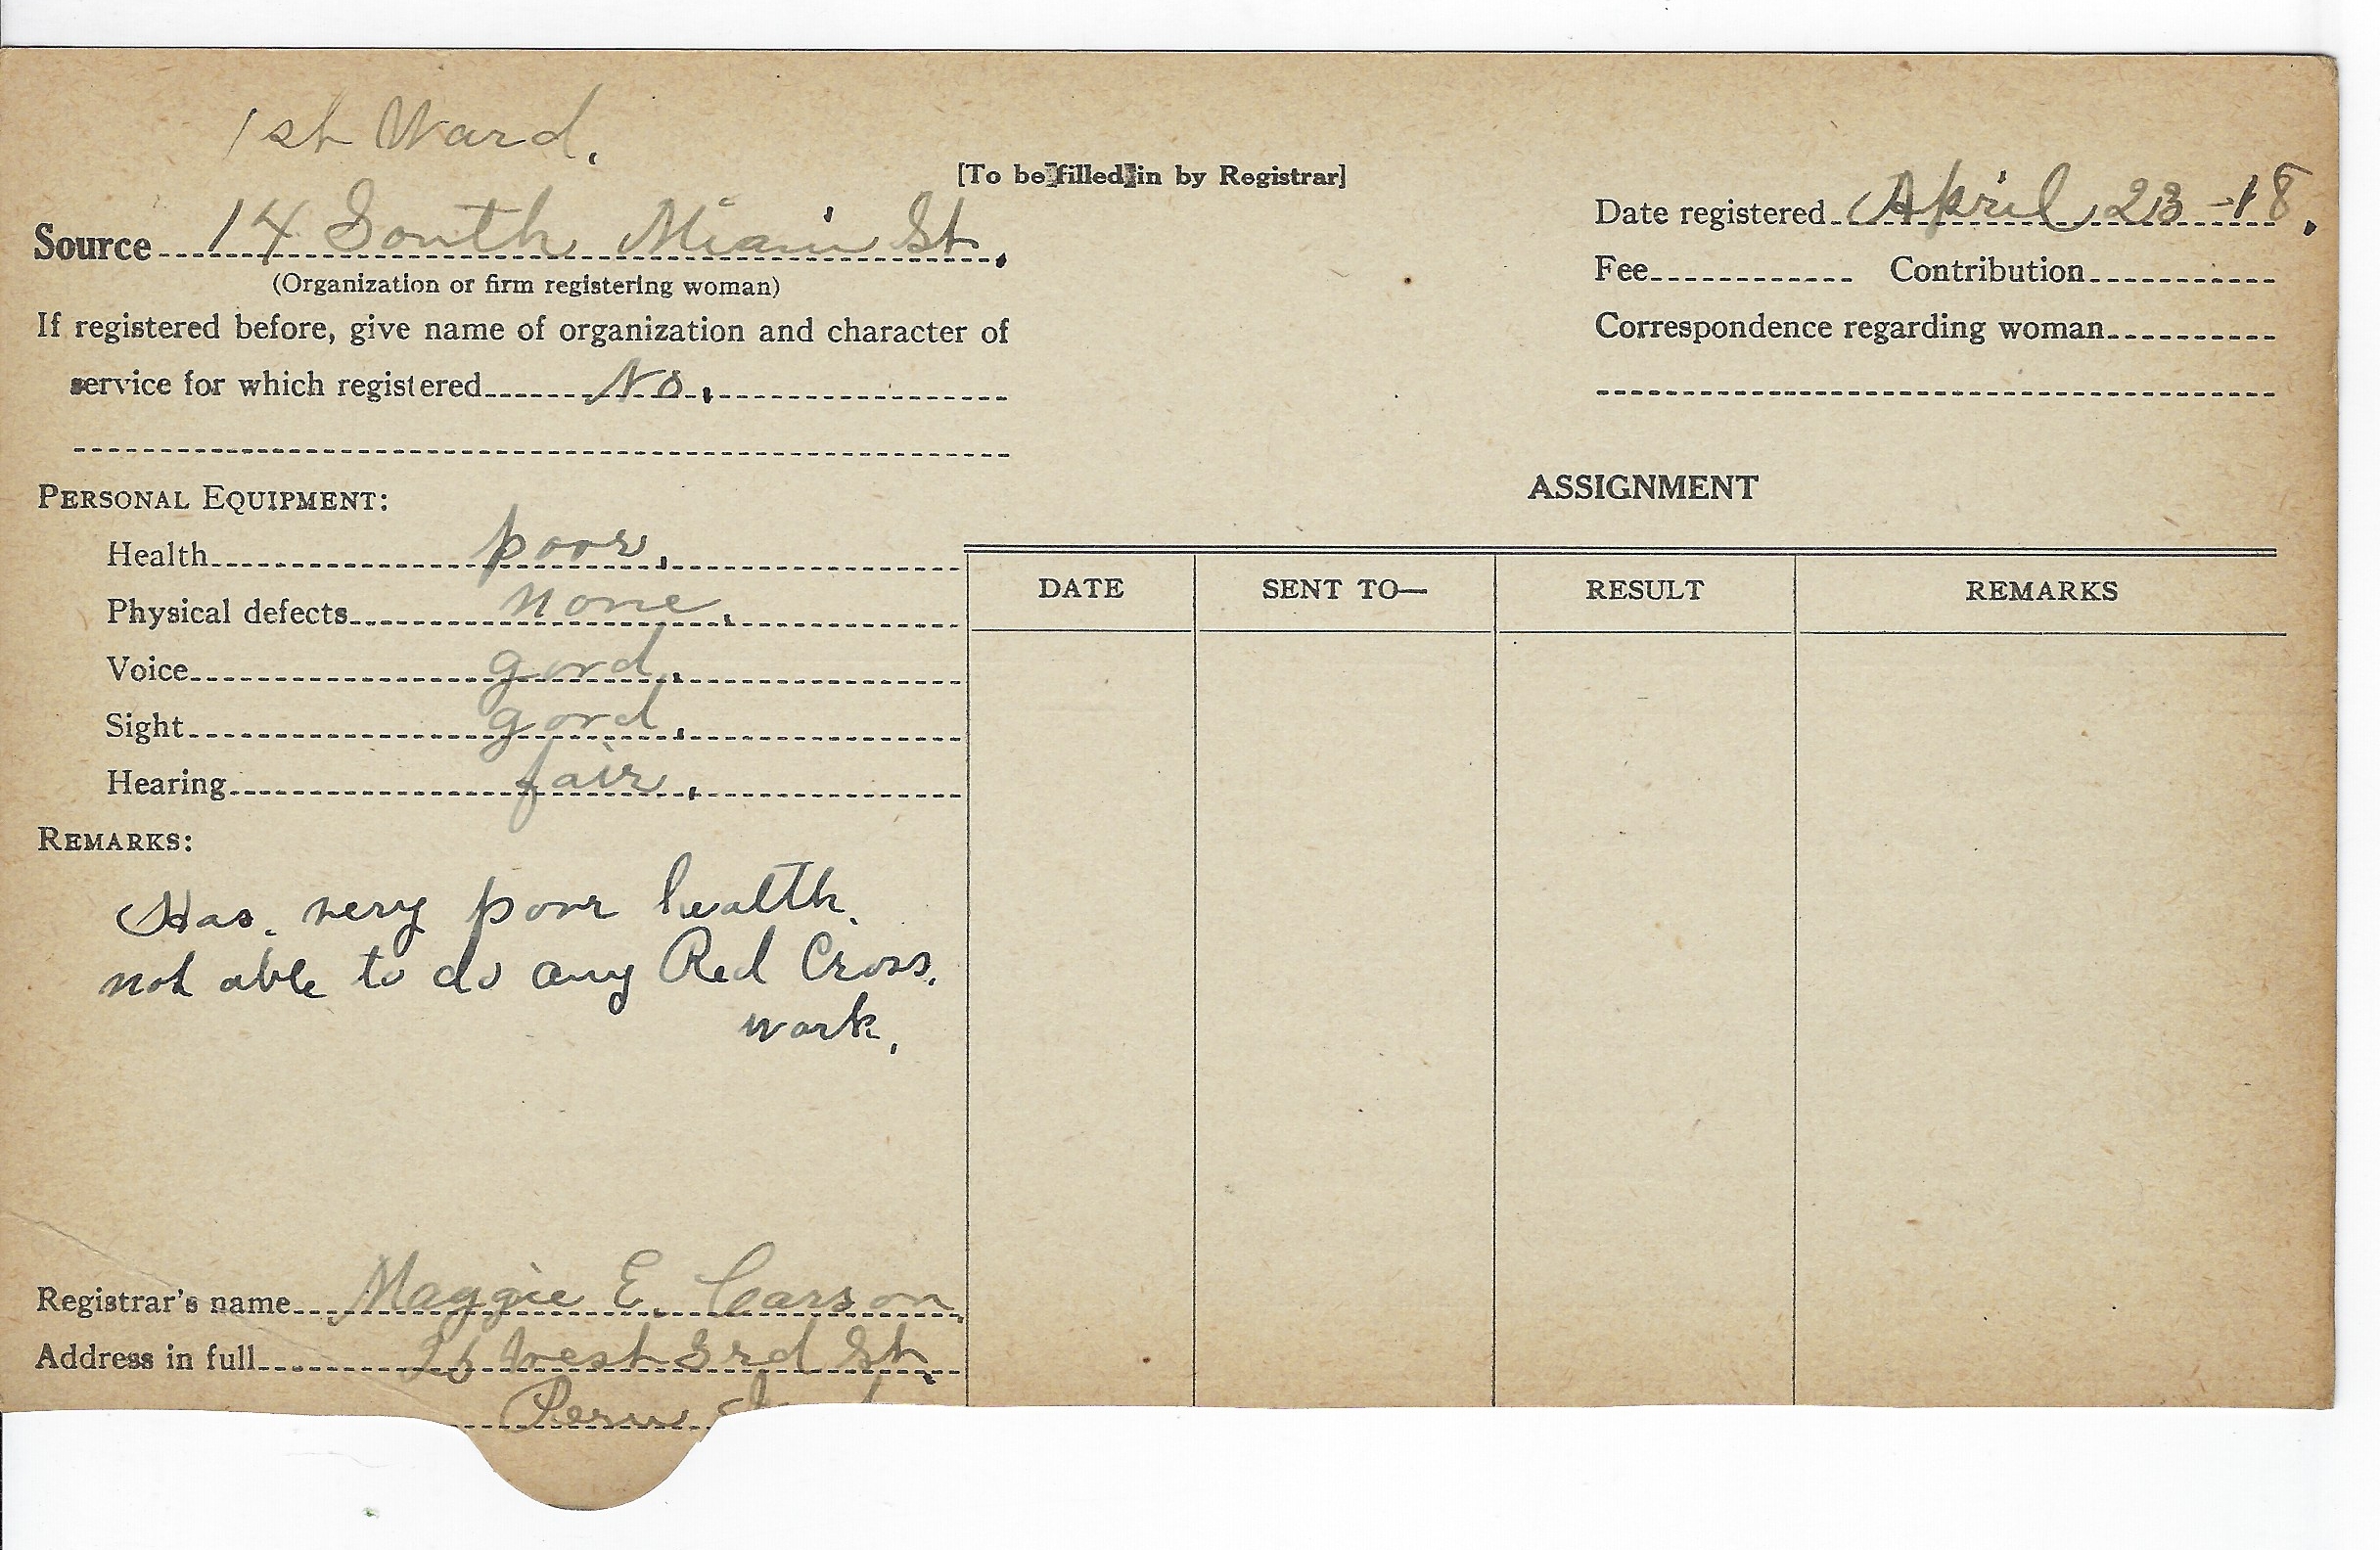 1st Ward.
[To be filled in by Registrar]
Source 14 South Miami St.
(Organization or firm registering woman)
If registered before, give name of organization and character of
service for which registered No.
Date registered April 23-18.
Fee Contribution
Correspondence regarding woman
PERSONAL EQUIPMENT:
Health poor.
Physical defects none.
Voice good.
Sight good.
Hearing fair.
REMARKS:
Has very poor health.
not able to do any Red Cross.
work.
Registrar's name Maggie E. Carson.
Address in full 26 West 3rd St.
Peru
ASSIGNMENT
DATE SENT TO— RESULT REMARKS